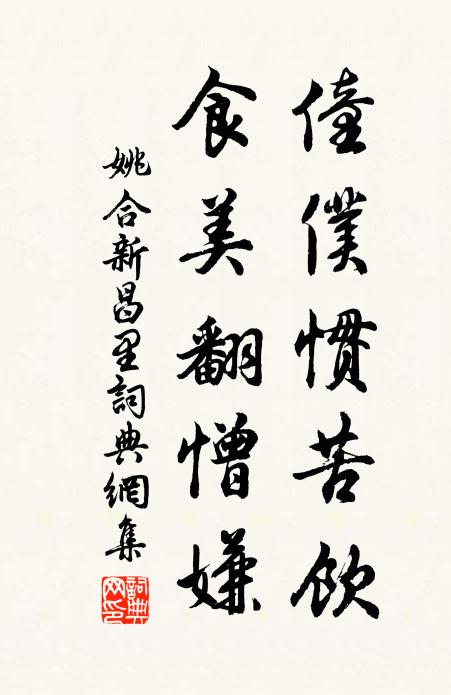 僮僕慣苦飲
食美翻憎嫌
姚合新昌里詞典網集
詞典网印